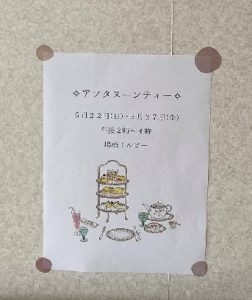 ✧アフタヌーンティー✧
5月22日(日)・5月27日(金)
午後2時～4時
場所：ルゴー